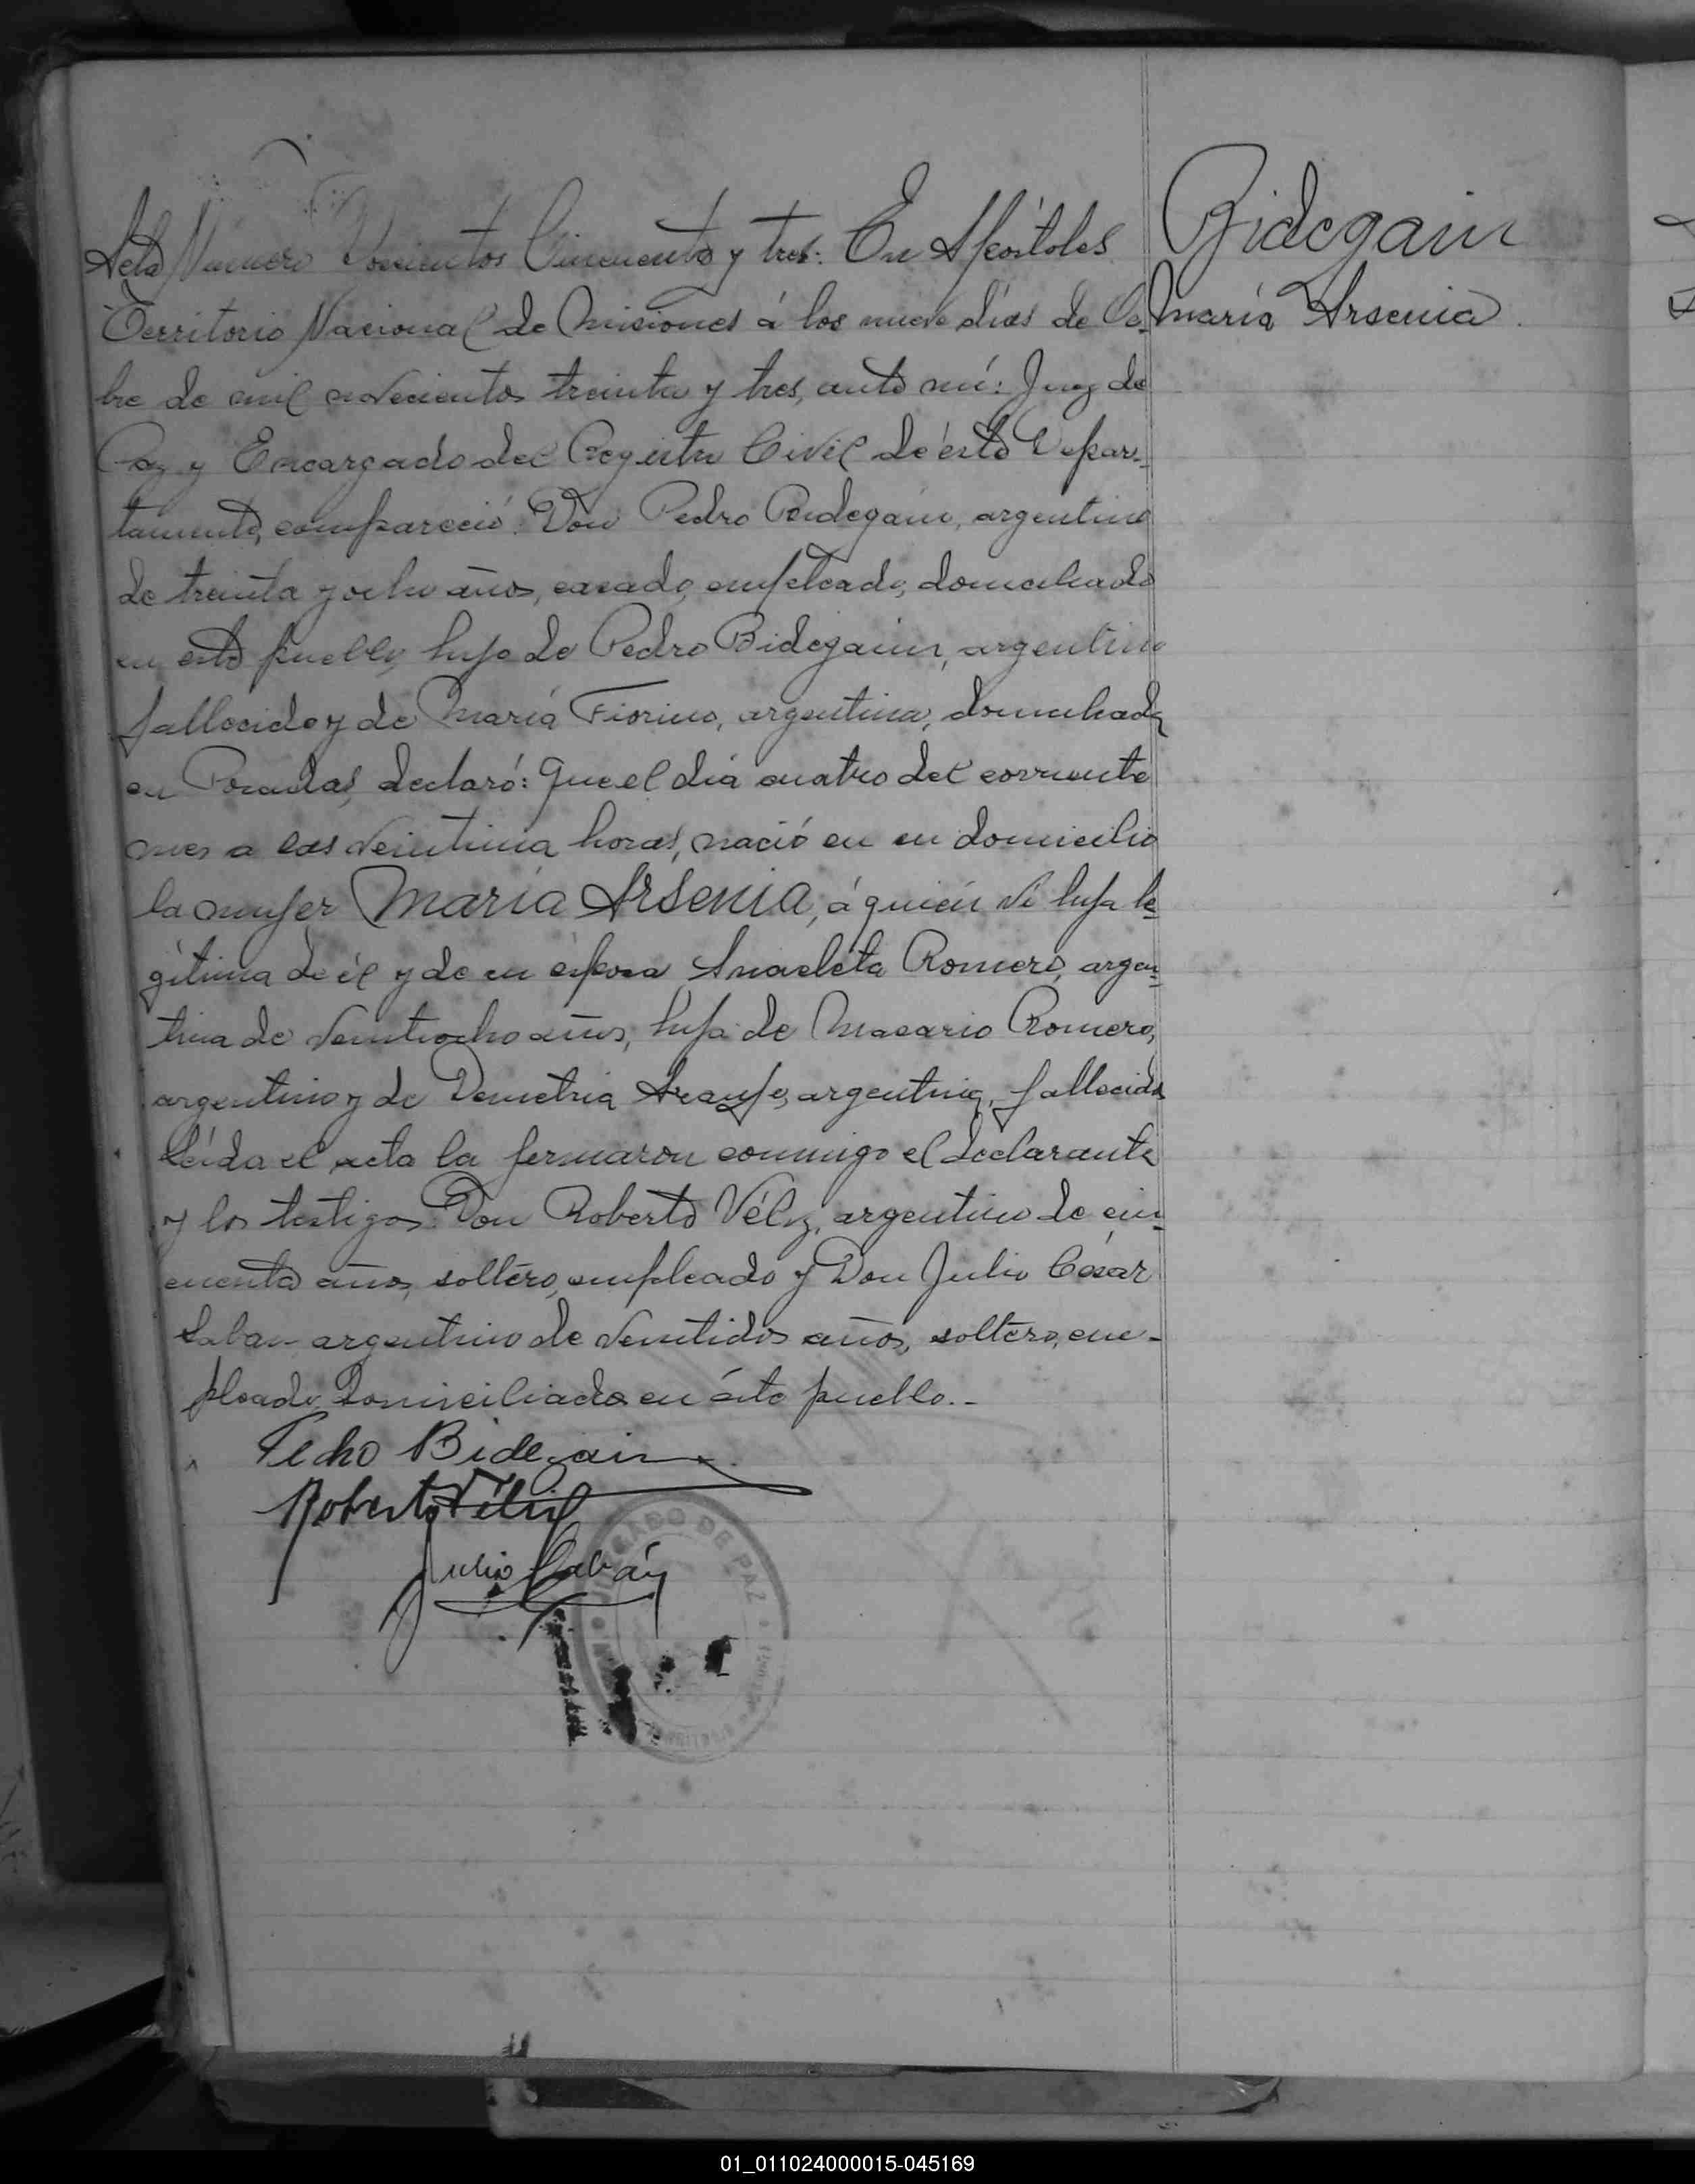 Acta Número Doscientos Cincuenta y tres: En Apóstoles
Bidegain
Territorio Nacional de Misiones á los nueve días de Oc-
María Arsenia
bre de mil novecientos treinta y tres, ante mí: Juez de
Paz y Encargado del Registro Civil de éste Depar-
tamento, compareció: Don Pedro Bidegain, argentino
de treinta y ocho años, casado, empleado, domiciliado
en este pueblo, hijo de Pedro Bidegain, argentino
fallecido y de María Fiorino, argentina, domiciliada
en Posadas, declaró: Que el día cuatro del corriente
mes a las veintiuna horas, nació en su domicilio
la mujer María Arsenia, á quien vi hija le-
gítima de él y de su esposa Anacleta Romero, argen-
tina de veintiocho años, hija de Macario Romero,
argentino y de Demetria argentina, fallecida
Leída el acta la firmaron conmigo el declarante
y los testigos: Don Roberto Véliz, argentino de cin-
cuenta años, soltero, empleado y Don Julio César
Laban argentino de veintidos años, soltero, em-
pleado, domiciliados en éste pueblo.-
Pedro Bidegain
Roberto Véliz
Julio Labán
JUZGADO DE PAZ
01_011024000015-045169